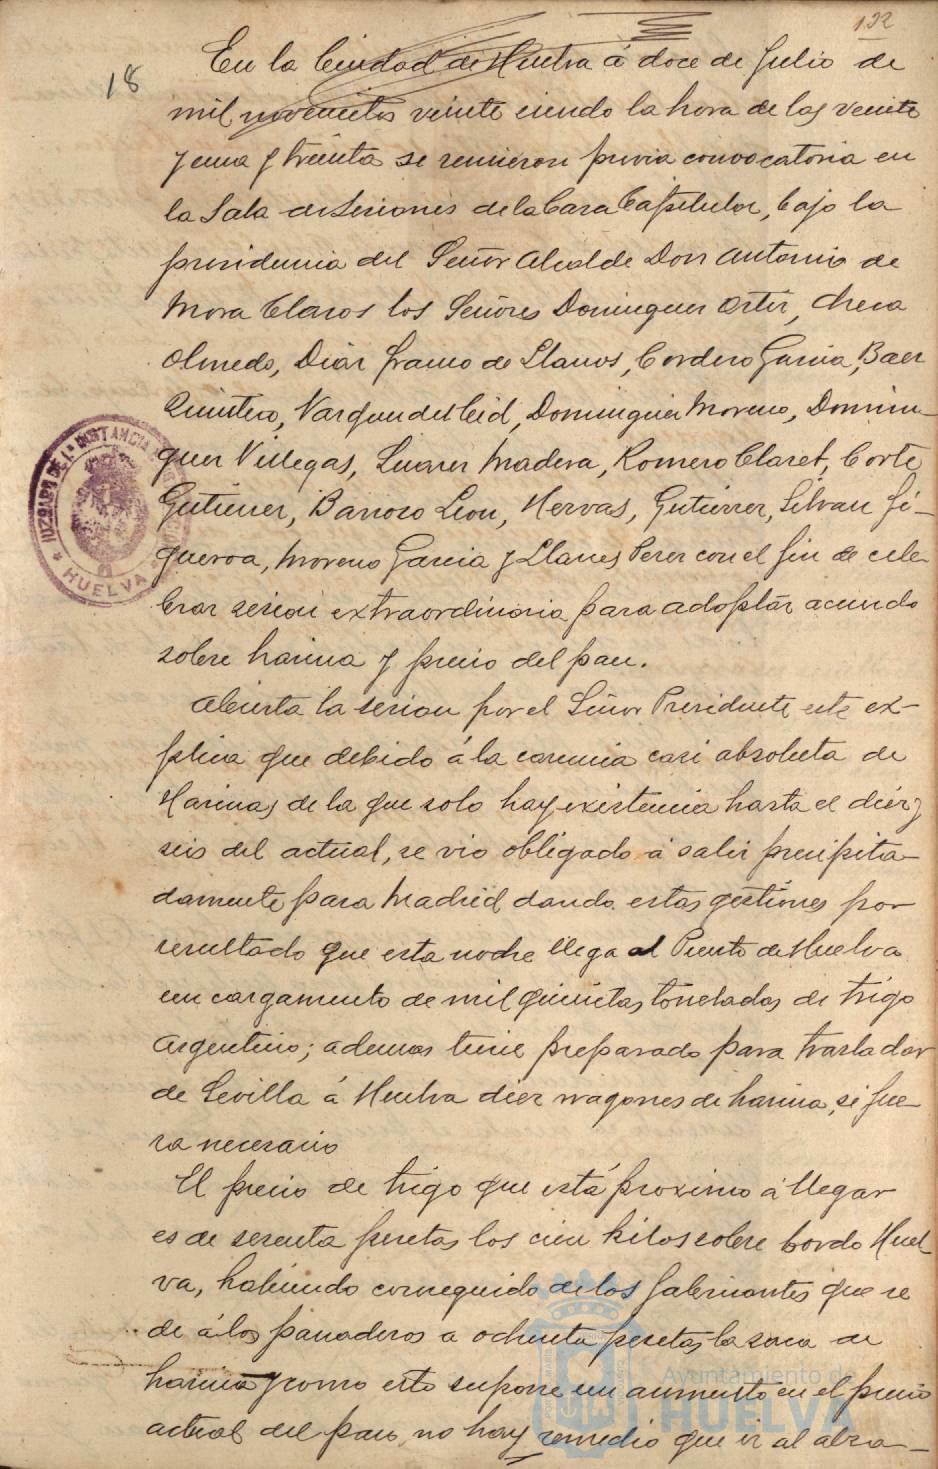 122
18
En la Ciudad de Huelva á doce de Julio de
mil novecientos veinte siendo la hora de las veinte
y una y treinta se reunieron previa convocatoria en
la Sala de Sesiones de la Casa Capitular, bajo la
presidencia del Señor Alcalde Don Antonio de
Mora Claros los Señores Dominguez Ortiz, Checa
Olmedo, Diaz Franco de Llanos, Cordero Garcia, Baez
Quintero, Vazquez del Cid, Dominguez Moreno, Domin-
guez Villegas, Suarez Madera, Romero Claret, Corte
Gutierrez, Barroso Leon, Hervas, Gutierrez, Silvan Fi-
gueroa, Moreno Garcia y Llanes Perez con el fin de cele-
brar sesion extraordinaria para adoptar acuerdo
sobre harina y precio del pan.
Abierta la sesion por el Señor Presidente este ex-
plica que debido á la carencia casi absoluta de
Harinas de la que solo hay existencia hasta el diez y
seis del actual, se vio obligado á salir precipita-
damente para Madrid dando estas gestiones por
resultado que esta noche llega al Puerto de Huelva
un cargamento de mil quinientas toneladas de trigo
Argentino; ademas tiene preparado para trasladar
de Sevilla á Huelva diez wagones de harina, si fue-
ra necesario
El precio de trigo que está proximo á llegar
es de sesenta pesetas los cien kilos sobre bordo Huel-
va, habiendo conseguido de los fabricantes que se
de á los panaderos a ochenta pesetas la saca de
harina y como esto supone un aumento en el precio
actual del pan, no hay remedio que ir al alza-
JUZGADO DE 1ª INSTANCIA
* HUELVA *
Ayuntamiento de
HUELVA